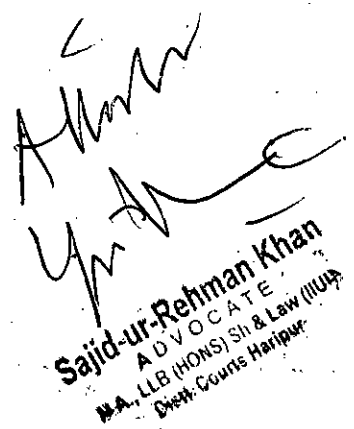 Sajid-ur-Rehman Khan
ADVOCATE
MA., LLB (HONS) Sh & Law (IIUI)
Distt. Courts Haripur